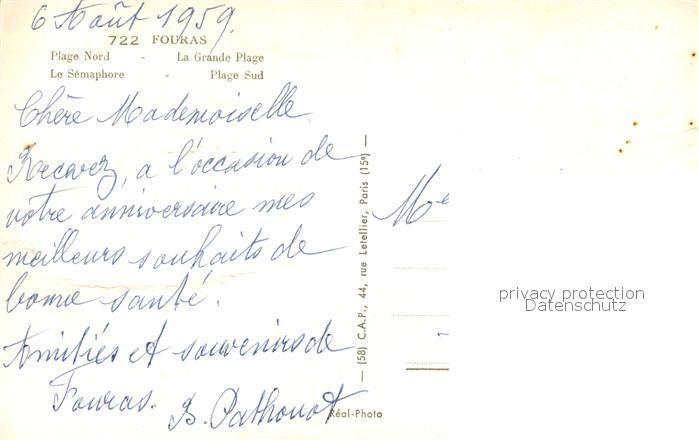 6 Août 1959.
722 FOURAS
Plage Nord - La Grande Plage
Le Sémaphore - Plage Sud
Chère Mademoiselle
Recevez, a l'occasion de
votre anniversaire mes
meilleurs souhaits de
bonne santé.
Amitiés et souvenirs de
Fouras. B. Pathouot
— (58) C.A.P., 44, rue Letellier, Paris (15e) —
Réal-Photo
Me
privacy protection
Datenschutz